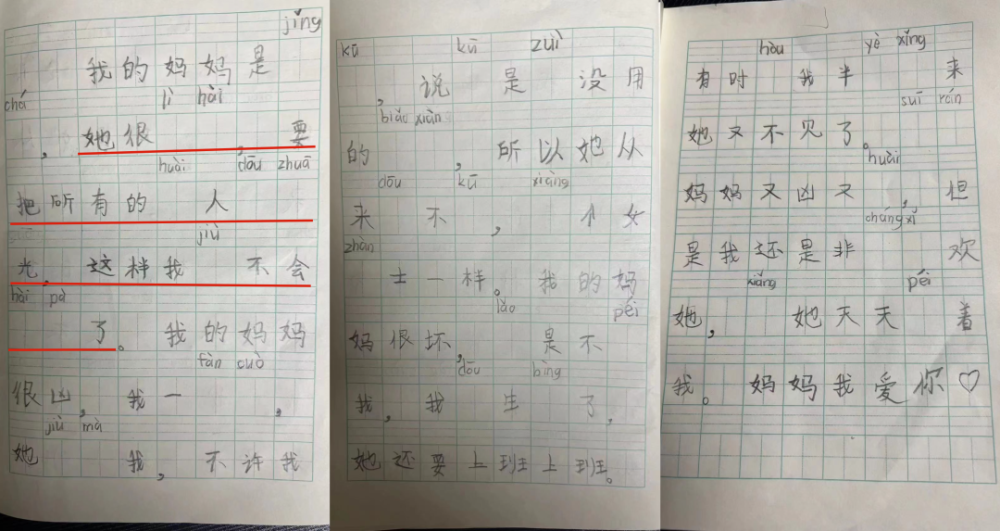 jǐng
我的妈妈是
chá lì hài
，她很 ，要
huài dōu zhuā
把所有的 人
jiù
光，这样我 不会
hài pà
了。我的妈妈
fàn cuò
很凶，我一 ，
jiù mà
她 我，不许我
kū kū zuì
，说 是没用
biǎo xiàn
的 ，所以她从
dōu kū xiàng
来 不 ， 个女
zhàn
士一样。我的妈
lǎo péi
妈很坏， 是不
dōu bìng
我，我 生 了，
她还要上班上班。
hòu yè xǐng
有时 我半 来
suī rán
她又不见了。
huài
妈妈又凶又 ，但
cháng xǐ
是我还是非 欢
xiǎng péi
她， 她天天 着
我。妈妈我爱你♡